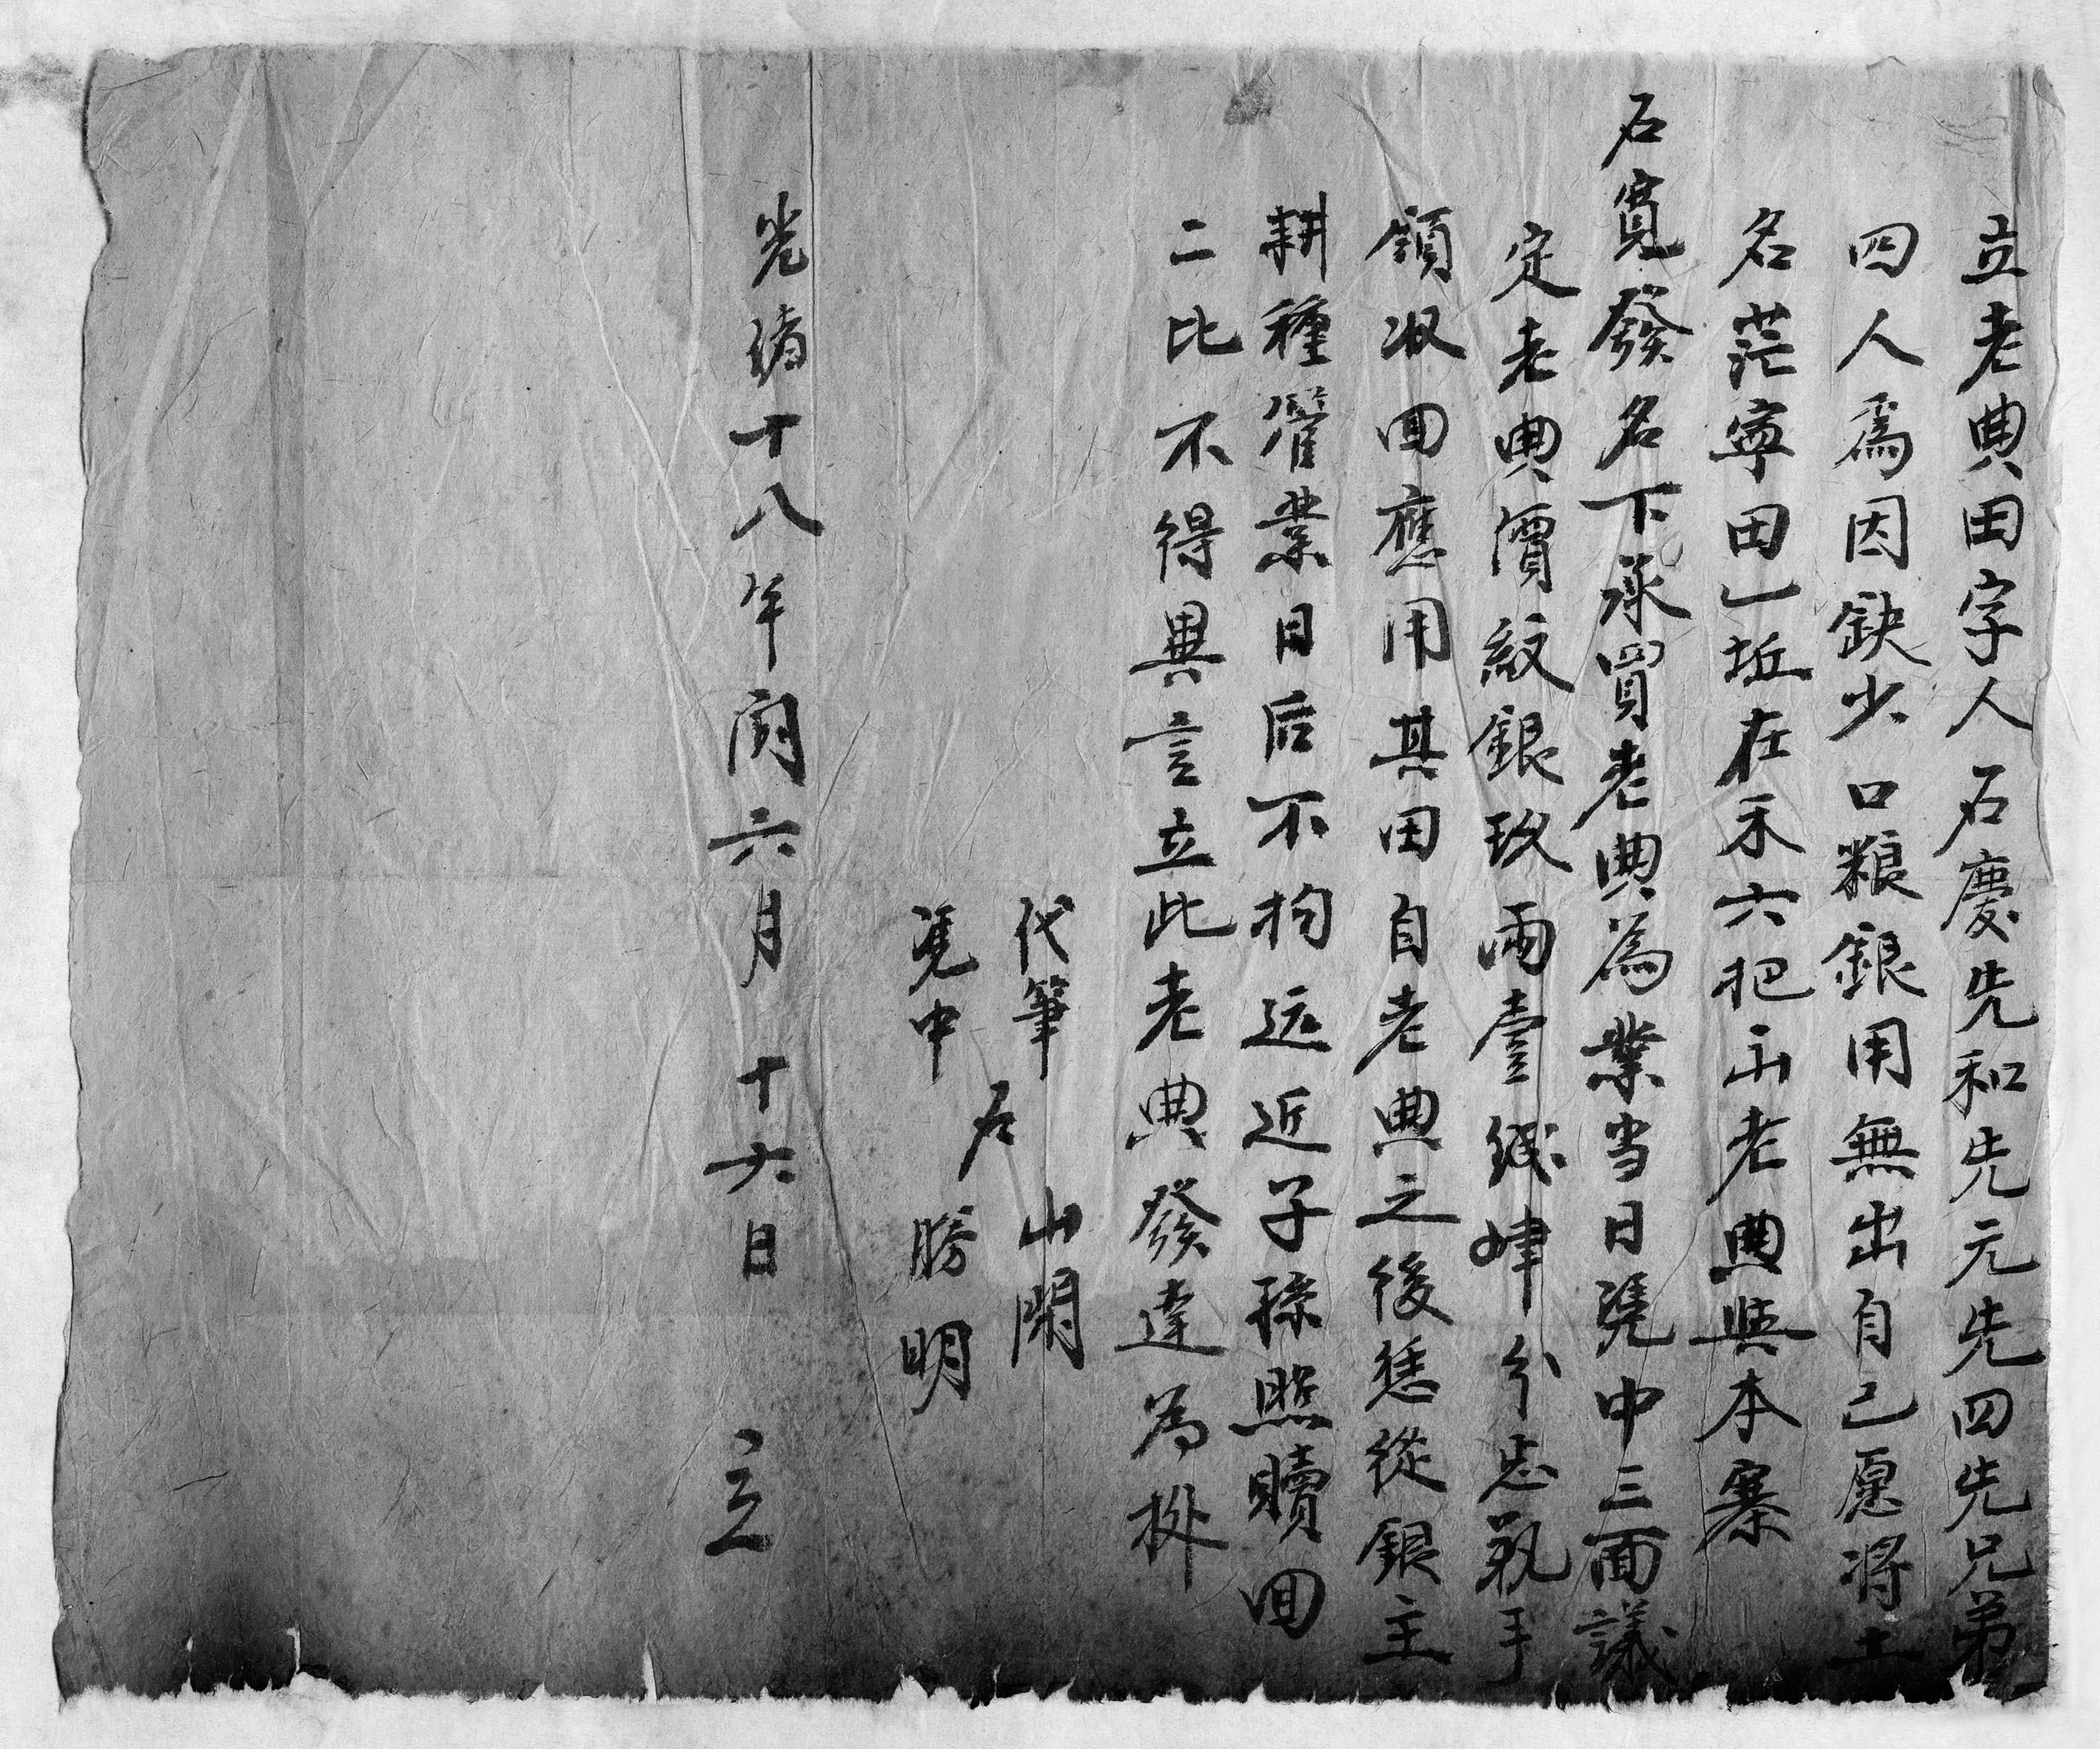 立老典田字人石慶先和先元先四先兄弟
四人爲因缺少口粮銀用無出自己愿將土
名茫寧田一坵在禾六把出老典與本寨
石寬發名下承買老典為業当日凴中三面議
定老典價紋銀玖両壹錢肆分忠親手
領收回應用其田自老典之後恁從銀主
耕種管業日后不拘远近子孫照贖回
二比不得異言立此老典發達為挷
代筆 石 山開
凴中 勝明
光緒十八年閏六月十六日 立